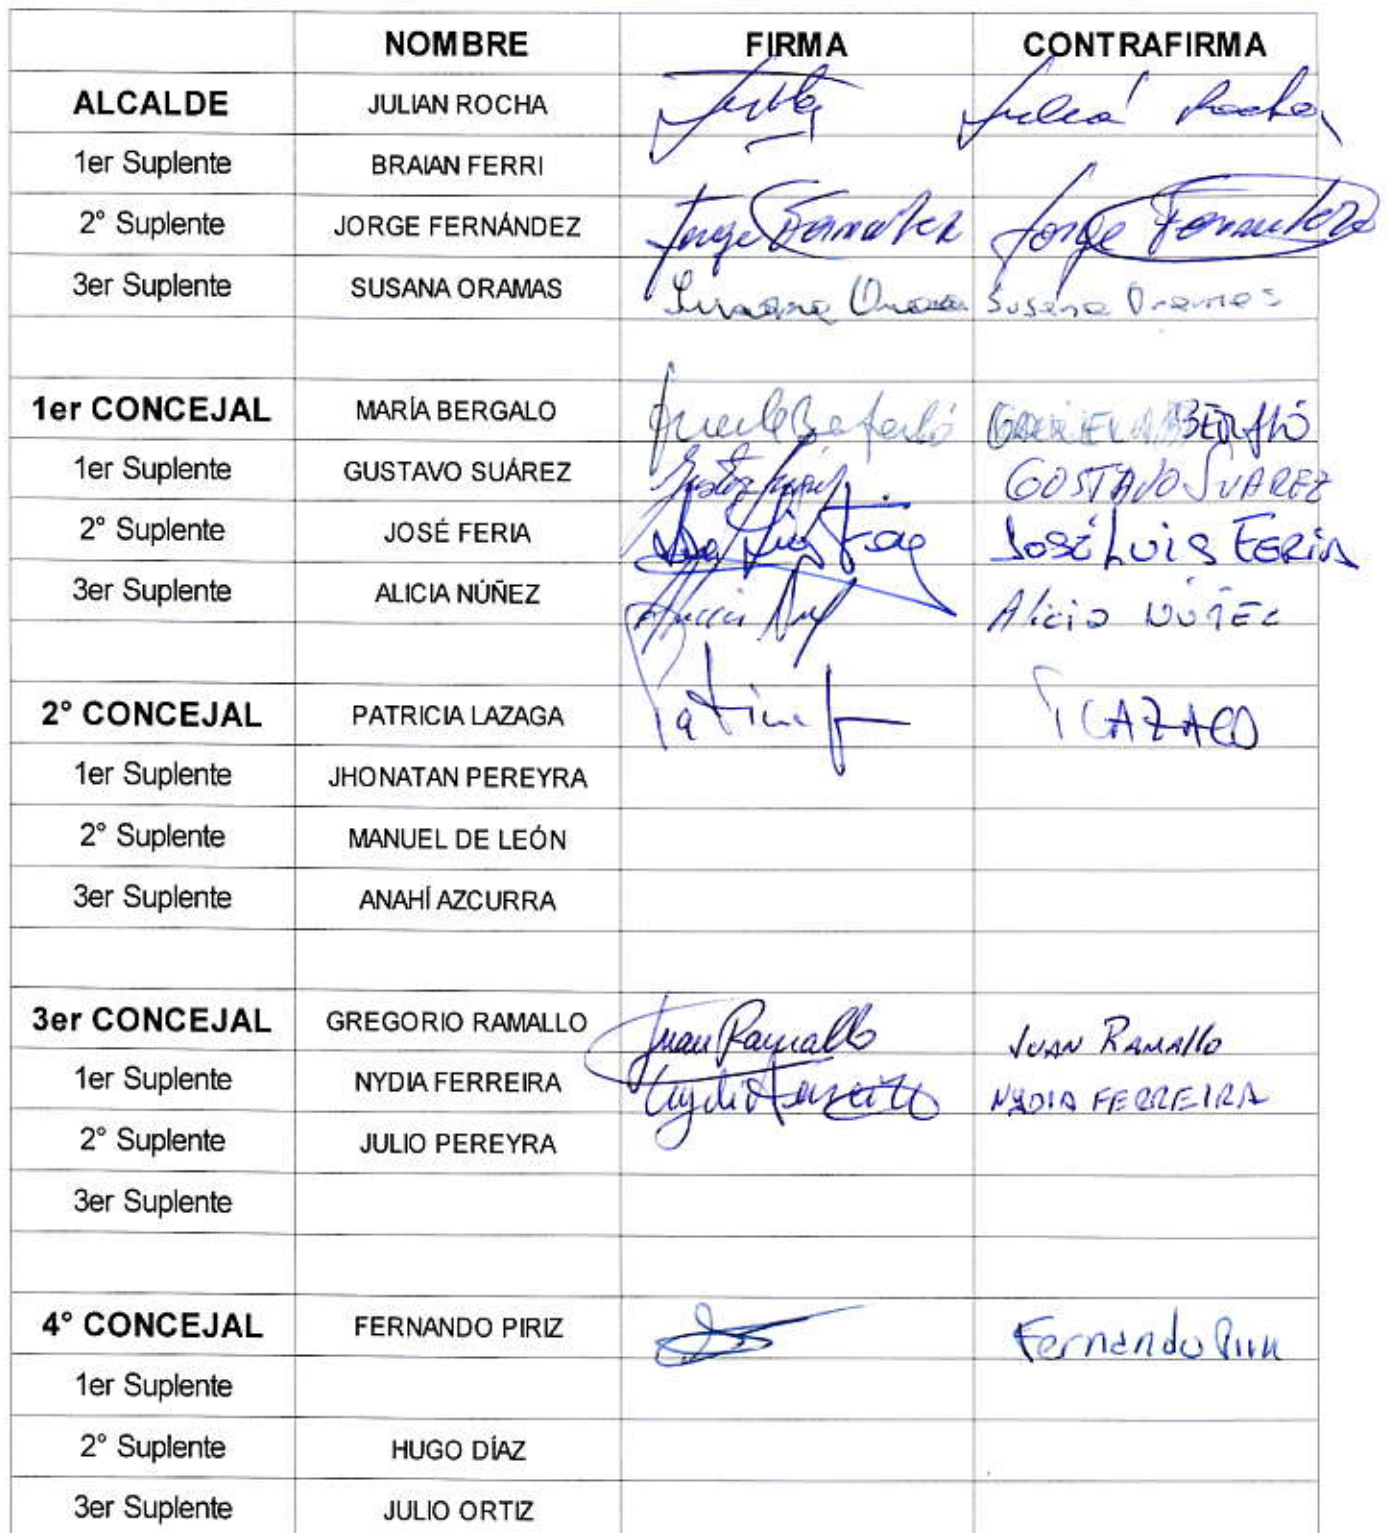 NOMBRE FIRMA CONTRAFIRMA
ALCALDE JULIAN ROCHA Julián Rocha
1er Suplente BRAIAN FERRI
2° Suplente JORGE FERNÁNDEZ Jorge Fernandez Jorge Fernandez
3er Suplente SUSANA ORAMAS Susana Susana Oramas
1er CONCEJAL MARÍA BERGALO
1er Suplente GUSTAVO SUÁREZ GUSTAVO SUAREZ
2° Suplente JOSÉ FERIA JOSÉ LUIS FERIA
3er Suplente ALICIA NÚÑEZ Alicia NÚÑEZ
2° CONCEJAL PATRICIA LAZAGA
1er Suplente JHONATAN PEREYRA
2° Suplente MANUEL DE LEÓN
3er Suplente ANAHÍ AZCURRA
3er CONCEJAL GREGORIO RAMALLO Juan Ramallo JUAN RAMALLO
1er Suplente NYDIA FERREIRA Nydia Ferreira NYDIA FERREIRA
2° Suplente JULIO PEREYRA
3er Suplente
4° CONCEJAL FERNANDO PIRIZ Fernando Piriz
1er Suplente
2° Suplente HUGO DÍAZ
3er Suplente JULIO ORTIZ